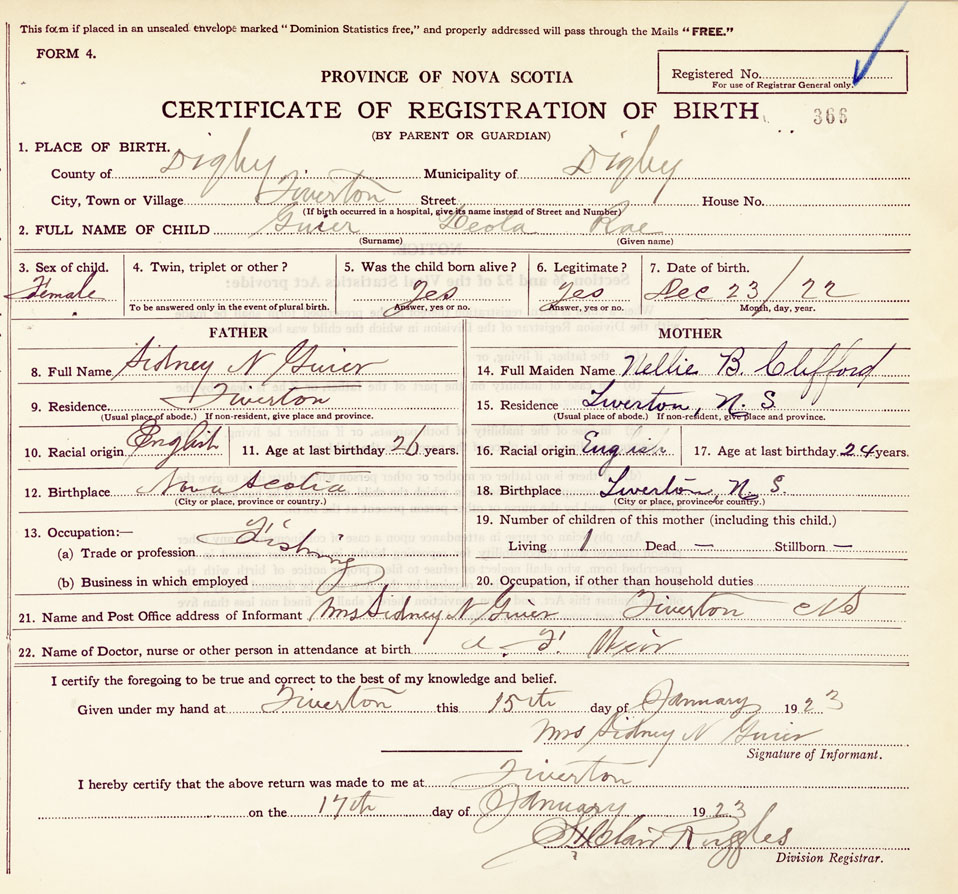 This form if placed in an unsealed envelope marked "Dominion Statistics free," and properly addressed will pass through the Mails "FREE."
FORM 4.
Registered No.
For use of Registrar General only.
PROVINCE OF NOVA SCOTIA
CERTIFICATE OF REGISTRATION OF BIRTH
366
(BY PARENT OR GUARDIAN)
1. PLACE OF BIRTH.
County of Digby Municipality of Digby
City, Town or Village Tiverton Street House No.
(If birth occurred in a hospital, give its name instead of Street and Number)
2. FULL NAME OF CHILD Guier Leola Rae
(Surname) (Given name)
3. Sex of child. 4. Twin, triplet or other? 5. Was the child born alive? 6. Legitimate? 7. Date of birth.
Female Yes Yes Dec 23/22
To be answered only in the event of plural birth. Answer, yes or no. Answer, yes or no. Month, day, year.
FATHER MOTHER
8. Full Name Sidney N Guier 14. Full Maiden Name Nellie B. Clifford
9. Residence Tiverton 15. Residence Tiverton, N. S
(Usual place of abode.) If non-resident, give place and province. (Usual place of abode.) If non-resident, give place and province.
10. Racial origin English 11. Age at last birthday 26 years. 16. Racial origin 17. Age at last birthday 24 years.
12. Birthplace Nova Scotia 18. Birthplace Tiverton, N. S.
(City or place, province or country.) (City or place, province or country.)
13. Occupation:— 19. Number of children of this mother (including this child.)
(a) Trade or profession Fishing Living 1 Dead — Stillborn —
(b) Business in which employed 20. Occupation, if other than household duties
21. Name and Post Office address of Informant Mrs Sidney N Guier Tiverton NS
22. Name of Doctor, nurse or other person in attendance at birth Weir
I certify the foregoing to be true and correct to the best of my knowledge and belief.
Given under my hand at Tiverton this 15th day of January 1923
Mrs Sidney N Guier
Signature of Informant.
I hereby certify that the above return was made to me at Tiverton
on the 17th day of January 1923
Ruggles
Division Registrar.